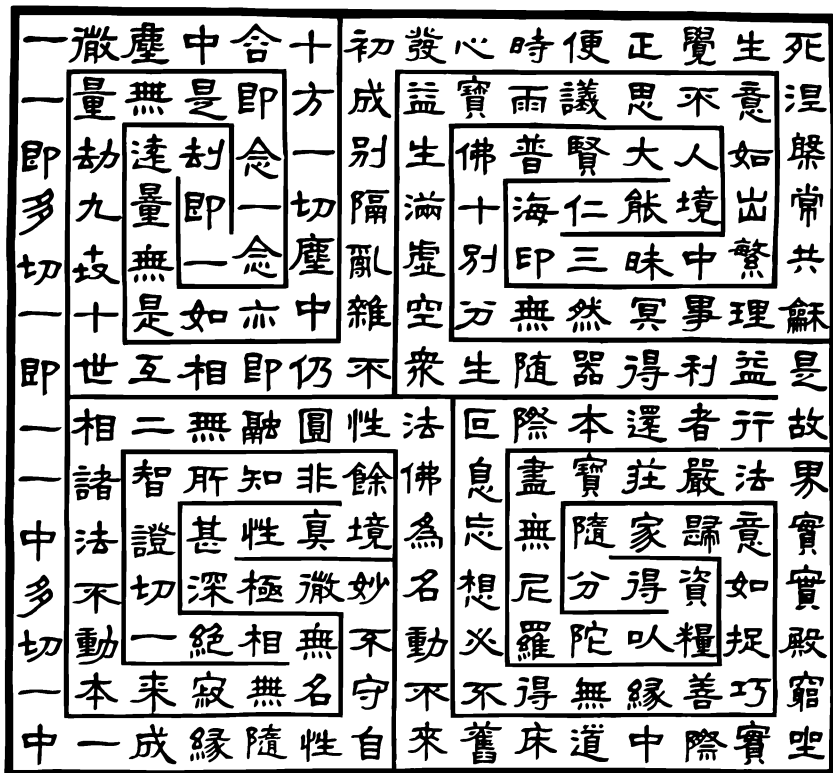 一微塵中含十初發心時便正覺生死
一量無是即方成益寶雨議思不意涅
即劫遠劫念一別生佛普賢大人如槃
多九量即一切隔滿十海仁能境出常
切世無一念塵亂虛別印三昧中繁共
一十是如亦中雜空分無然冥事理龢
即世互相即仍不衆生随器得利益是
一相二無融圓性法叵際本還者行故
一諸智所知非餘佛息盡寶莊嚴法界
中法證甚性真境為忘無隨家歸意實
多不切深極微妙名想尼分得資如實
切動一絕相無不動必羅陀以糧捉殿
一本来寂無名守不不得無緣善巧窮
中一成緣隨性自來舊床道中際實坐